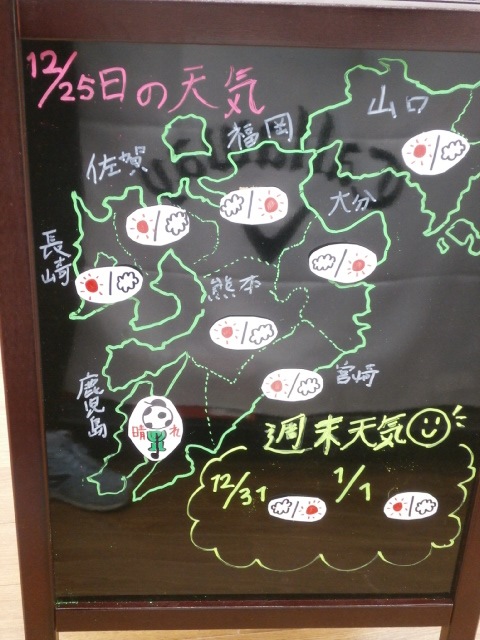 12/25日の天気
山口
福岡
佐賀
大分
長崎
熊本
宮崎
鹿児島
晴れ
週末天気
12/31
1/1